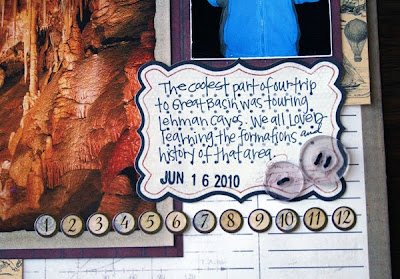 The coolest part of our trip
to Great Basin was touring
Lehman caves. We all loved
learning the formations and
history of that area.
JUN 16 2010
1 2 3 4 5 6 7 8 9 10 11 12